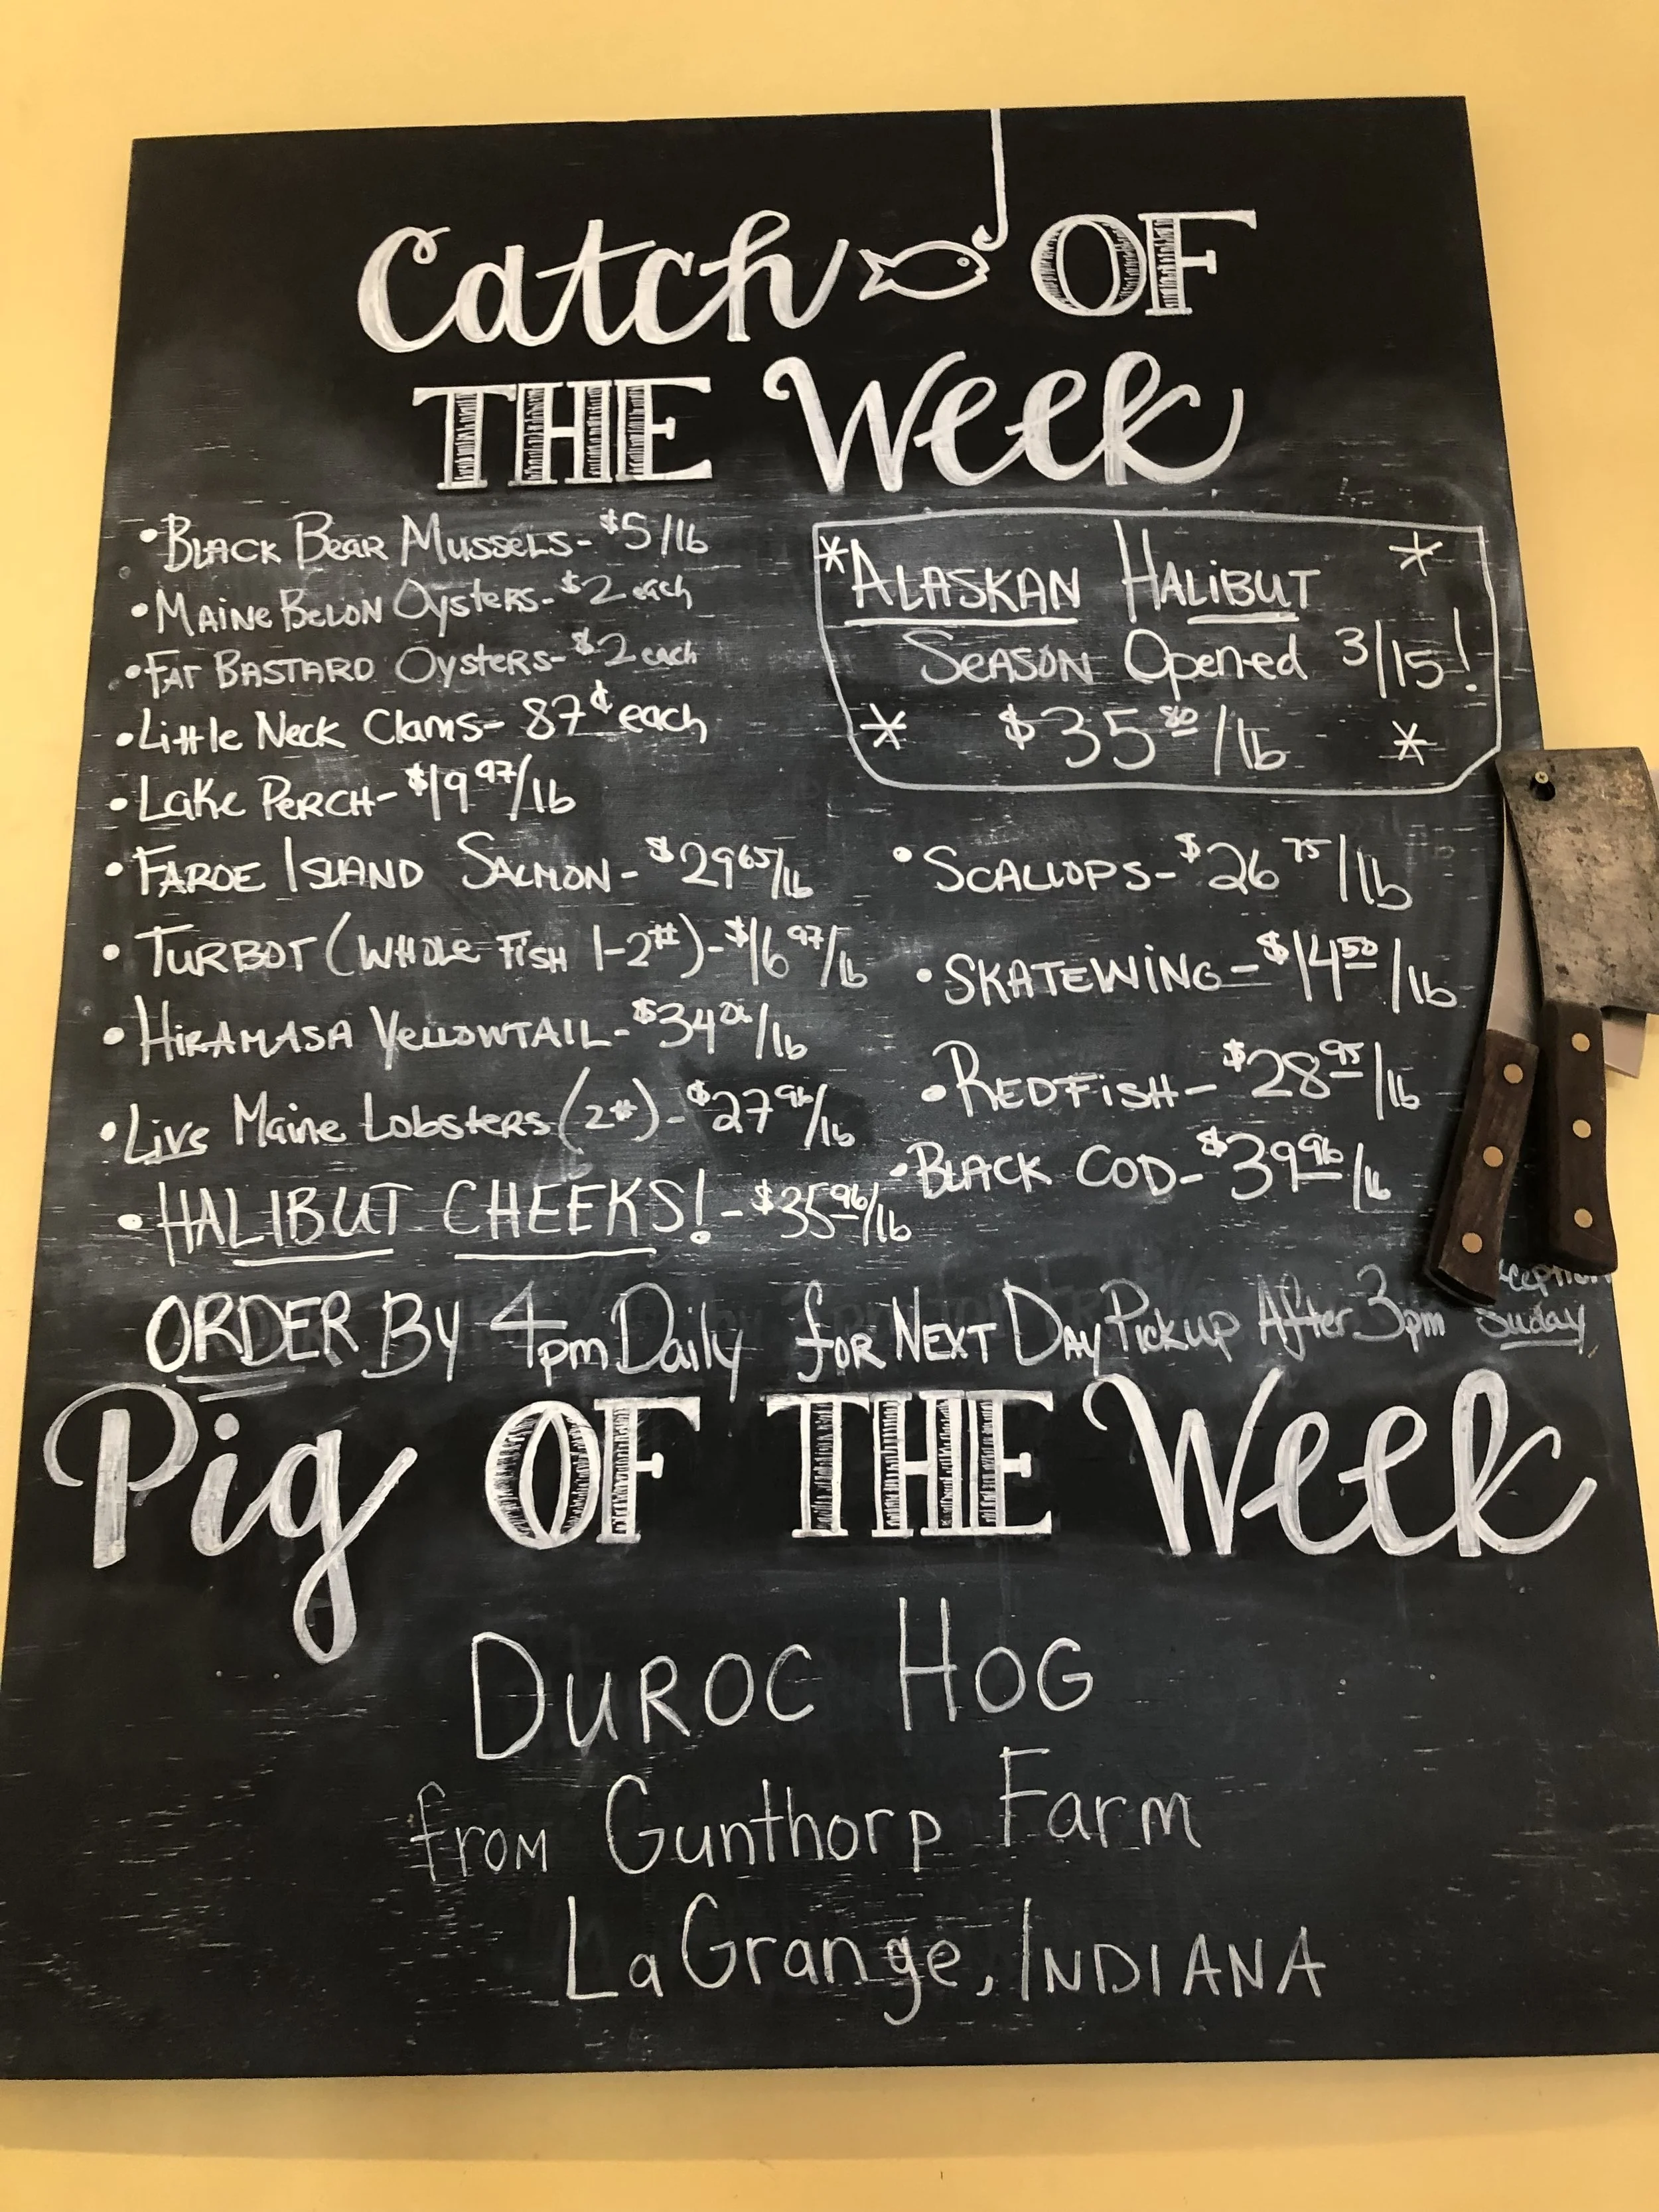 Catch OF
THE Week
• BLACK BEAR MUSSELS - $5/lb
• MAINE BELON OYSTERS - $2 each
• FAT BASTARD OYSTERS - $2 each
• Little Neck Clams - 87¢ each
• Lake PERCH - $19 97/lb
• FAROE ISLAND SALMON - $29 65/lb
• TURBOT (WHOLE FISH 1-2#) - $16 97/lb
• HIRAMASA YELLOWTAIL - $34 /lb
• Live Maine Lobsters (2#) - $27 96/lb
• HALIBUT CHEEKS! - $35 96/lb
* ALASKAN HALIBUT *
SEASON Opened 3/15!
* $35 80/lb *
• SCALLOPS - $26 75/lb
• SKATEWING - $14 50/lb
• REDFISH - $28 95/lb
• BLACK COD - $39 96/lb
ORDER BY 4pm Daily for NEXT DAY Pickup After 3pm
Suday
Pig OF THE Week
DUROC HOG
from Gunthorp Farm
LaGrange, INDIANA